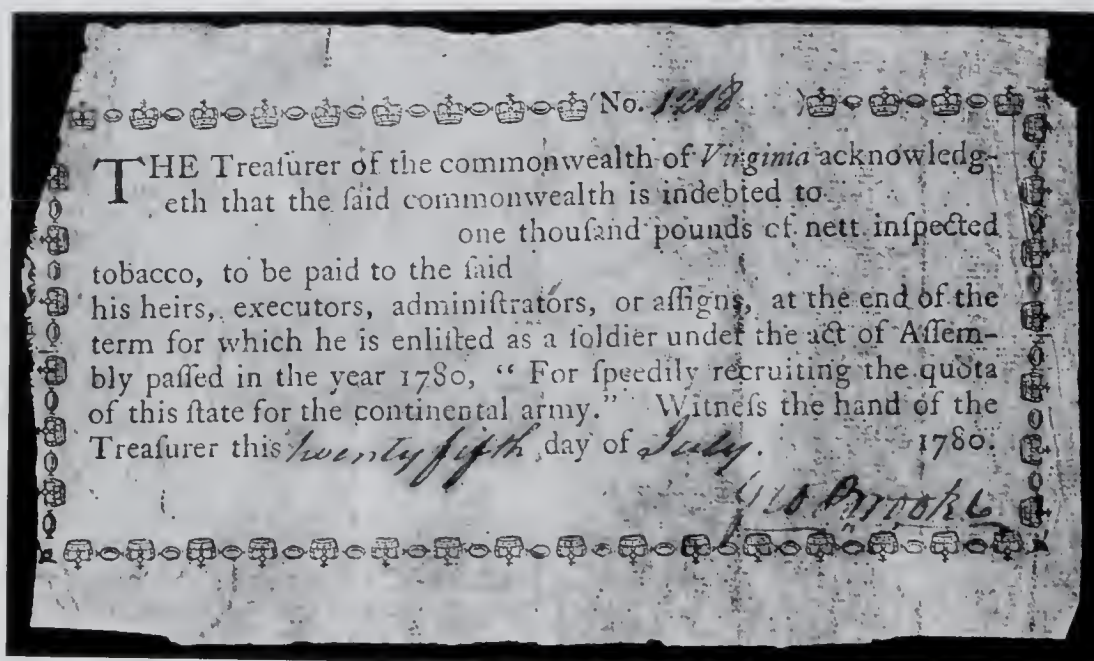 No. 1218
THE Treaſurer of the commonwealth of Virginia acknowledg-
eth that the ſaid commonwealth is indebted to
one thouſand pounds of nett inſpected
tobacco, to be paid to the ſaid
his heirs, executors, adminiſtrators, or aſſigns, at the end of the
term for which he is enliſted as a ſoldier under the act of Aſſem-
bly paſſed in the year 1780, “ For ſpeedily recruiting the quota
of this ſtate for the continental army.” Witneſs the hand of the
Treaſurer this twenty fifth day of July. 1780.
Geo Brooke